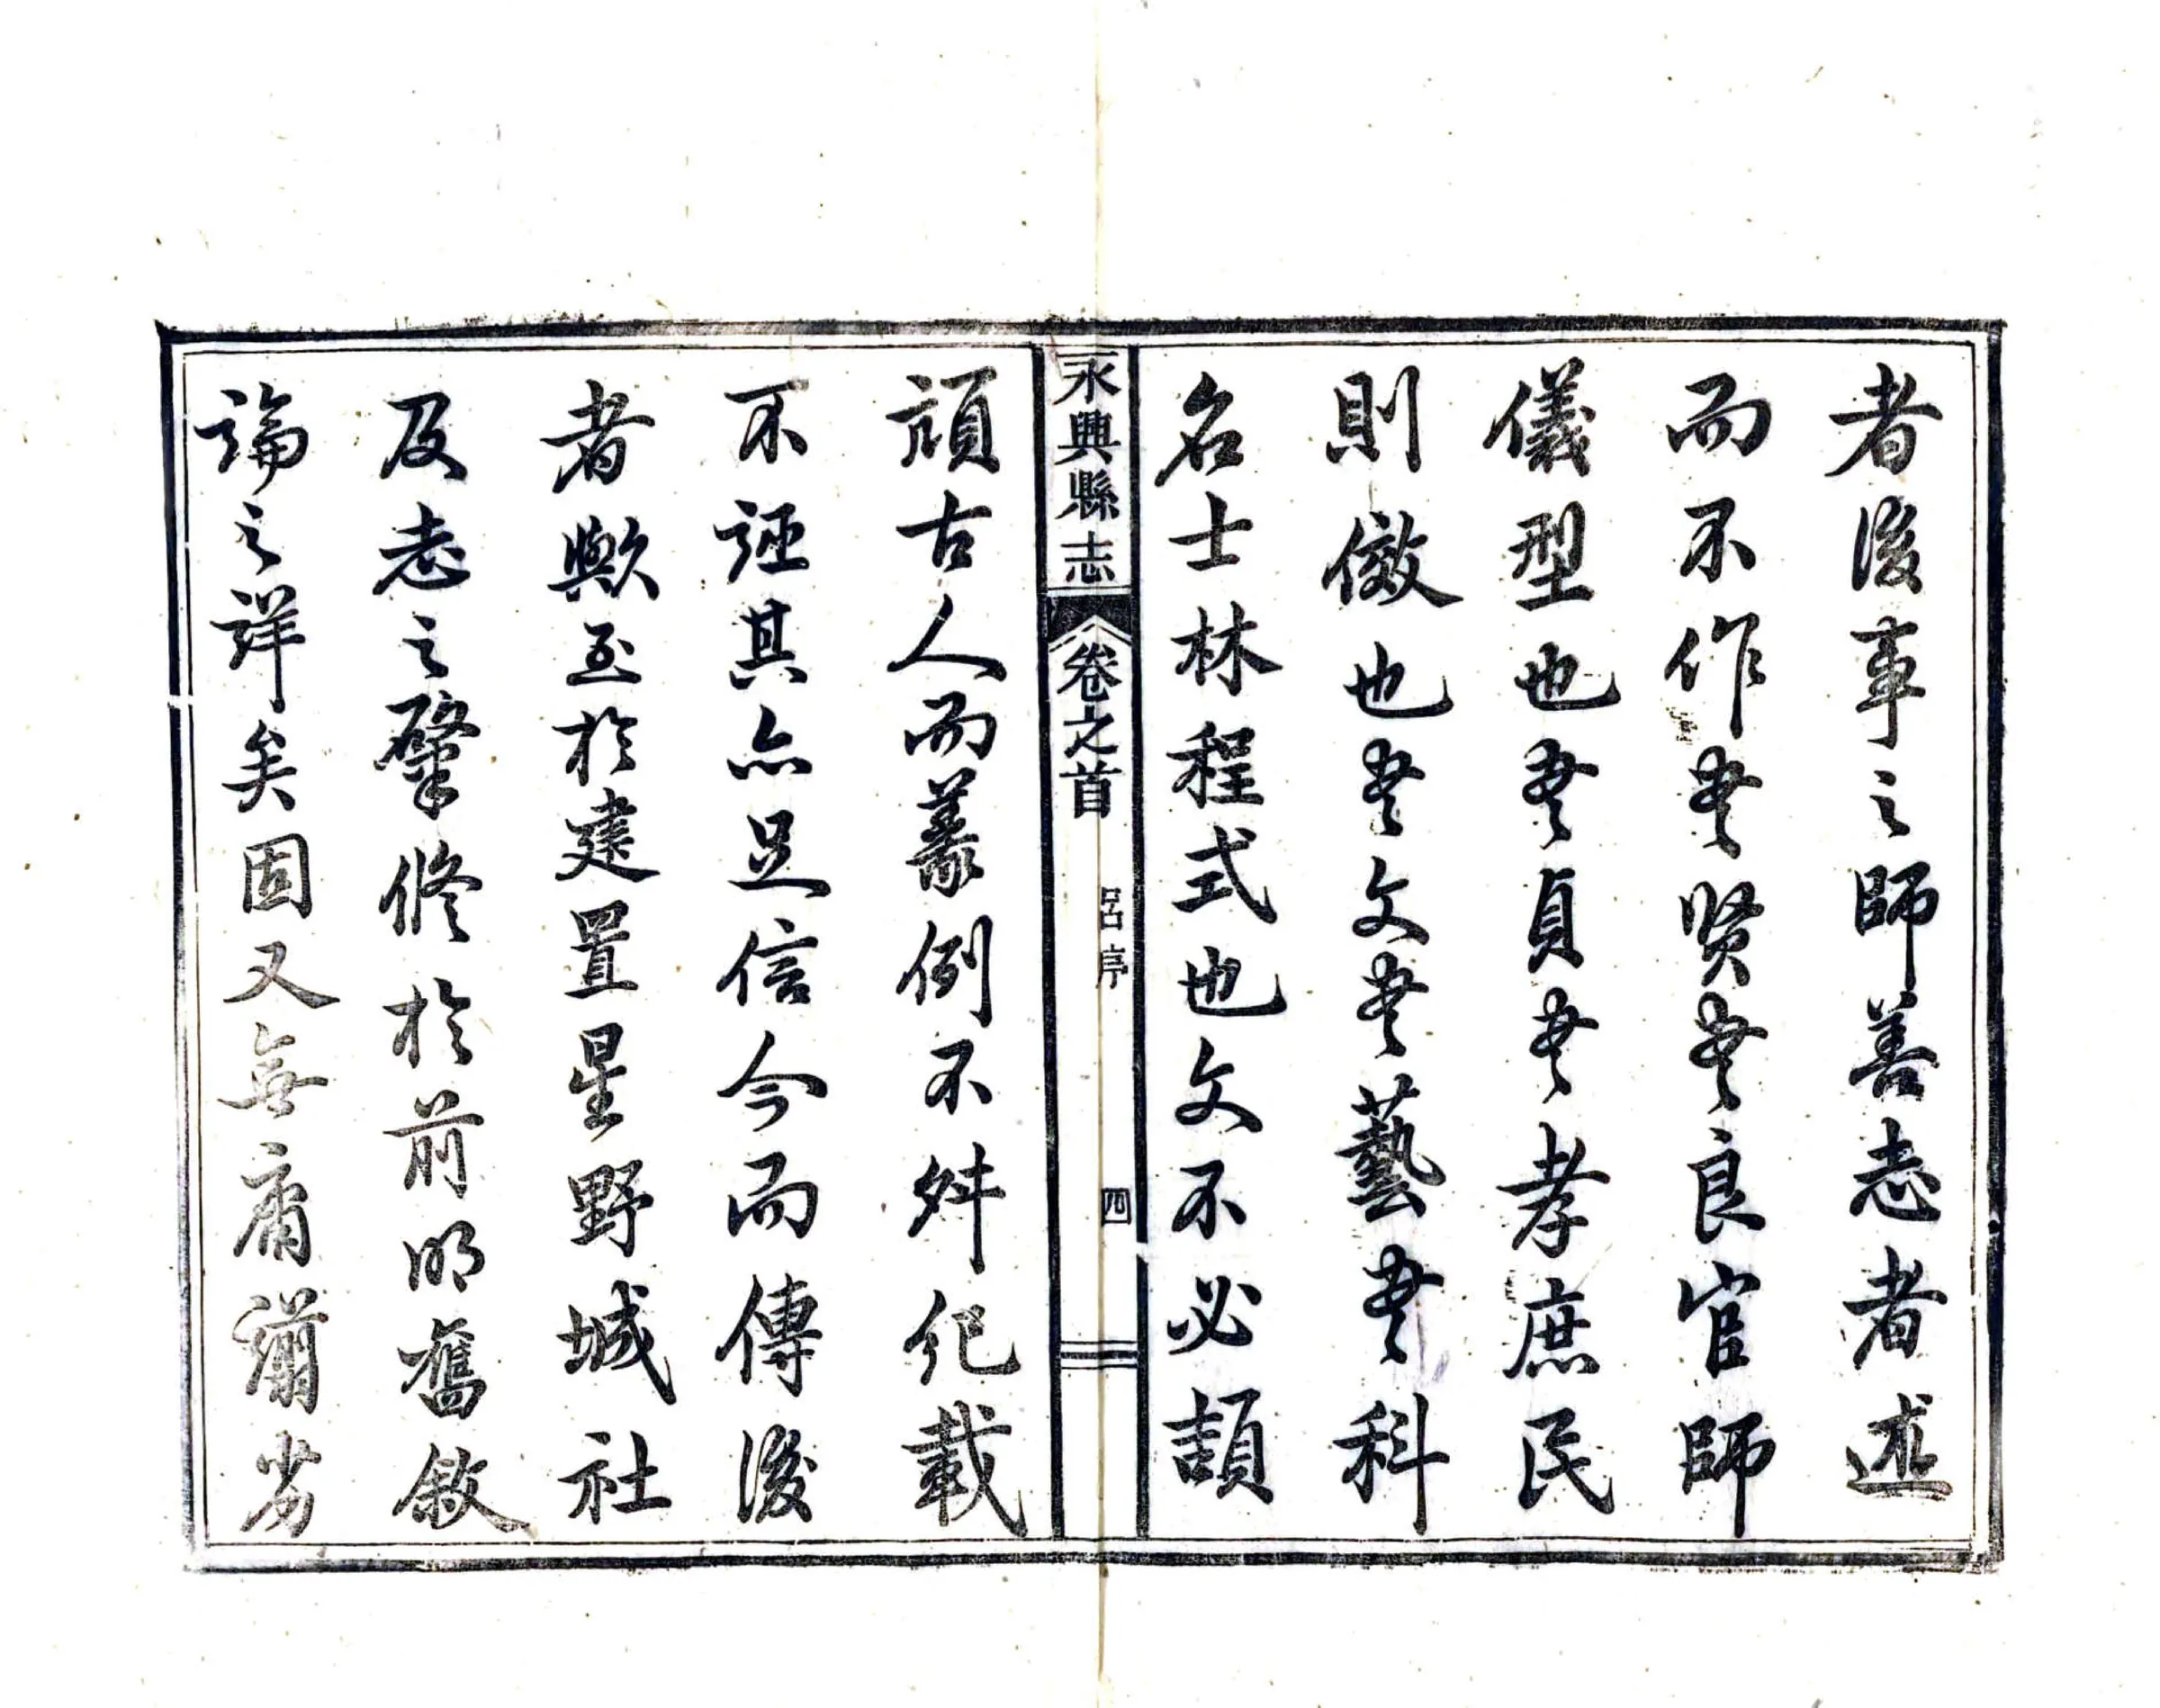 者後事之師善志者述
而不作書賢書良官師
儀型也書貞書孝庶民
則傚也書文書藝書科
名士林程式也文不必頡
永興縣志 卷之首 呂序 四
頏古人而義例不舛紀載
不誣其亦足信今而傳後
者歟至於建置星野城社
及志之肇修於前明舊敘
論之詳矣固又無庸謭劣